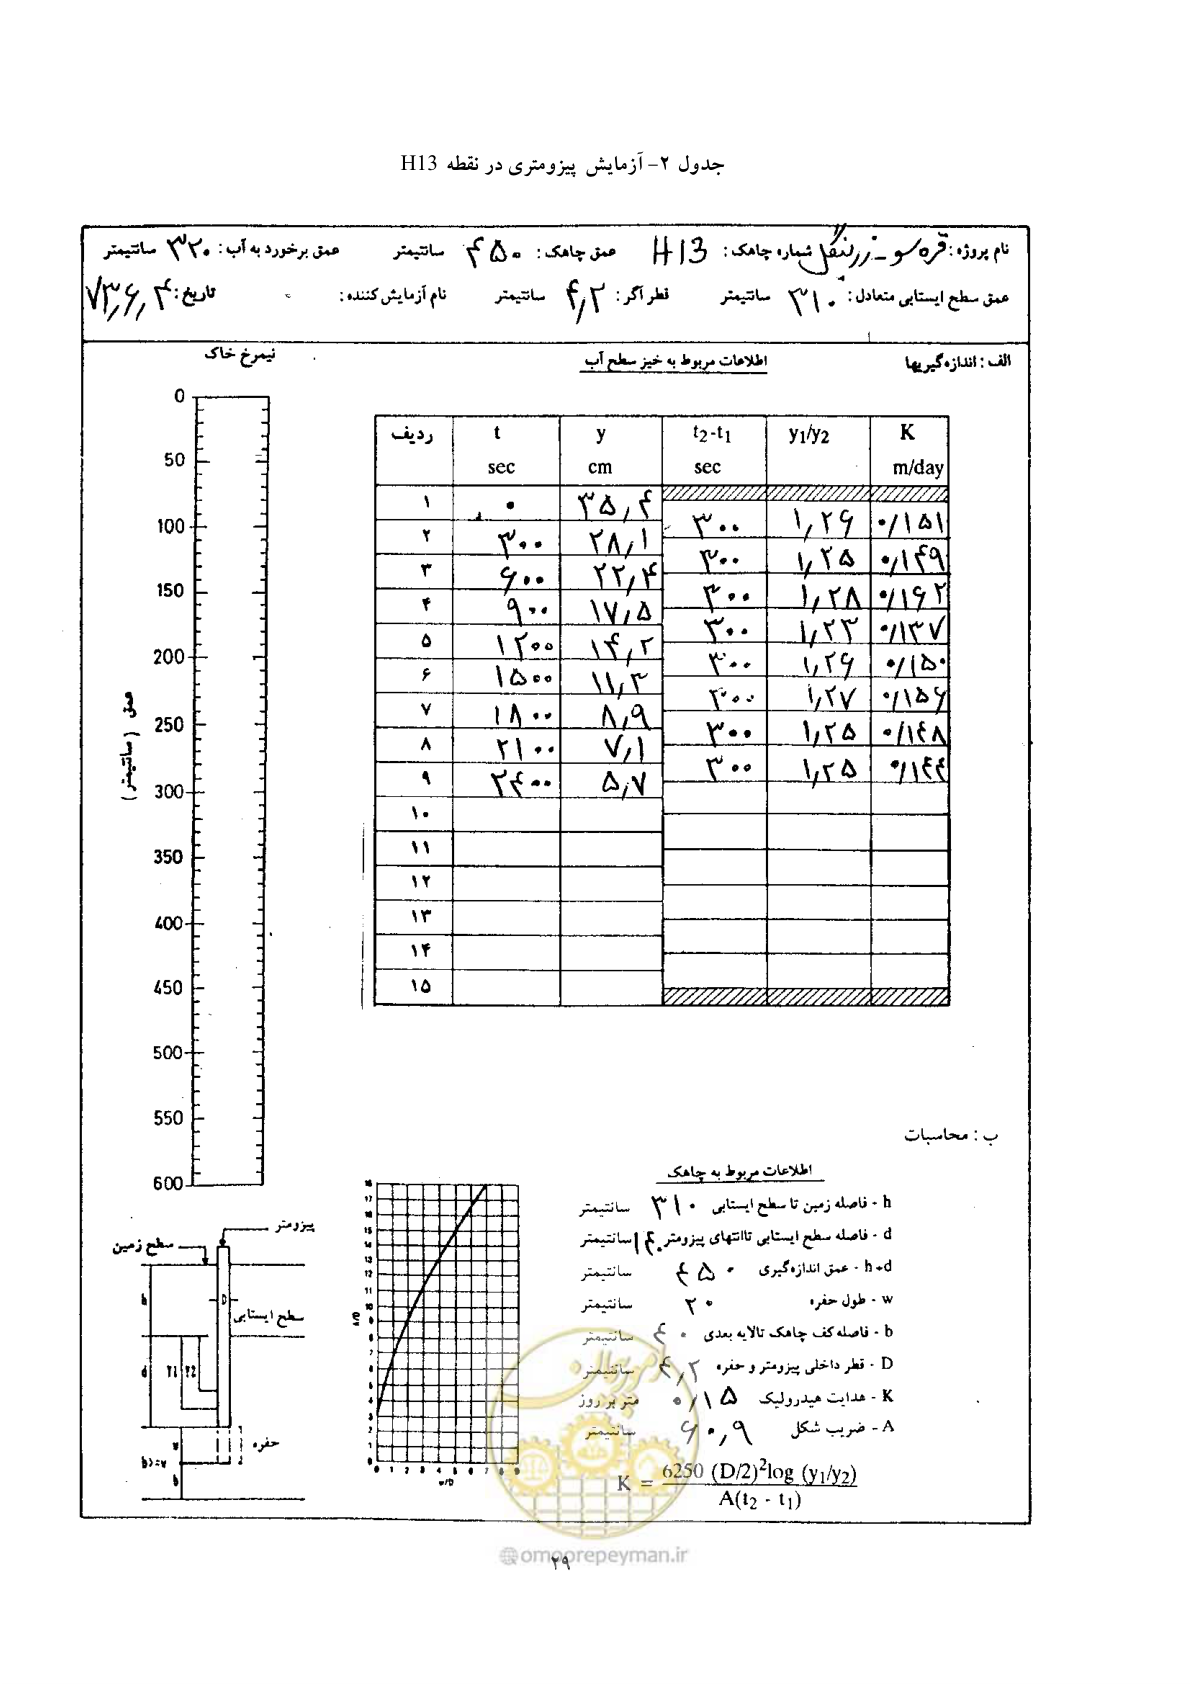 جدول ۲- آزمایش پیزومتری در نقطه H13
نام پروژه: قره‌سو - زرینگل شماره چاهک: H13 عمق چاهک: ۴۵۰ سانتیمتر عمق برخورد به آب: ۳۲۰ سانتیمتر
عمق سطح ایستابی متعادل: ۳۱۰ سانتیمتر قطر آگر: ۴٫۲ سانتیمتر نام آزمایش‌کننده: تاریخ: ۷۳٫۶٫۴
الف: اندازه‌گیریها اطلاعات مربوط به خیز سطح آب نیمرخ خاک
ردیف t y t2-t1 y1/y2 K
sec cm sec m/day
۱ ۰ ۳۵٫۴
۳۰۰ ۱٫۲۶ ۰/۱۵۱
۲ ۳۰۰ ۲۸٫۱
۳۰۰ ۱٫۲۵ ۰/۱۴۹
۳ ۶۰۰ ۲۲٫۴
۳۰۰ ۱٫۲۸ ۰/۱۶۲
۴ ۹۰۰ ۱۷٫۵
۳۰۰ ۱٫۲۳ ۰/۱۳۷
۵ ۱۲۰۰ ۱۴٫۲
۳۰۰ ۱٫۲۶ ۰/۱۵۰
۶ ۱۵۰۰ ۱۱٫۳
۳۰۰ ۱٫۲۷ ۰/۱۵۶
۷ ۱۸۰۰ ۸٫۹
۳۰۰ ۱٫۲۵ ۰/۱۴۸
۸ ۲۱۰۰ ۷٫۱
۳۰۰ ۱٫۲۵ ۰/۱۴۴
۹ ۲۴۰۰ ۵٫۷
۱۰
۱۱
۱۲
۱۳
۱۴
۱۵
0
50
100
150
200
250
300
350
400
450
500
550
600
عمق (سانتیمتر)
ب: محاسبات
اطلاعات مربوط به چاهک
h - فاصله زمین تا سطح ایستابی ۳۱۰ سانتیمتر
d - فاصله سطح ایستابی تا انتهای پیزومتر ۱۴۰ سانتیمتر
h+d - عمق اندازه‌گیری ۴۵۰ سانتیمتر
w - طول حفره ۲۰ سانتیمتر
b - فاصله کف چاهک تا لایه بعدی ۴۰ سانتیمتر
D - قطر داخلی پیزومتر و حفره ۴٫۲ سانتیمتر
K - هدایت هیدرولیک ۰/۱۵ متر بر روز
A - ضریب شکل ۶۰٫۹ سانتیمتر
K = 6250 (D/2)²log (y1/y2)
A(t2 - t1)
18
17
16
15
14
13
12
11
10
9
8
7
6
5
4
3
2
1
0
A/D
0 1 2 3 4 5 6 7 8 9
w/D
پیزومتر
سطح زمین
h
D
سطح ایستابی
d
Y1 Y2
حفره
w
b>=w
b
@omoorepeyman.ir
۲۹